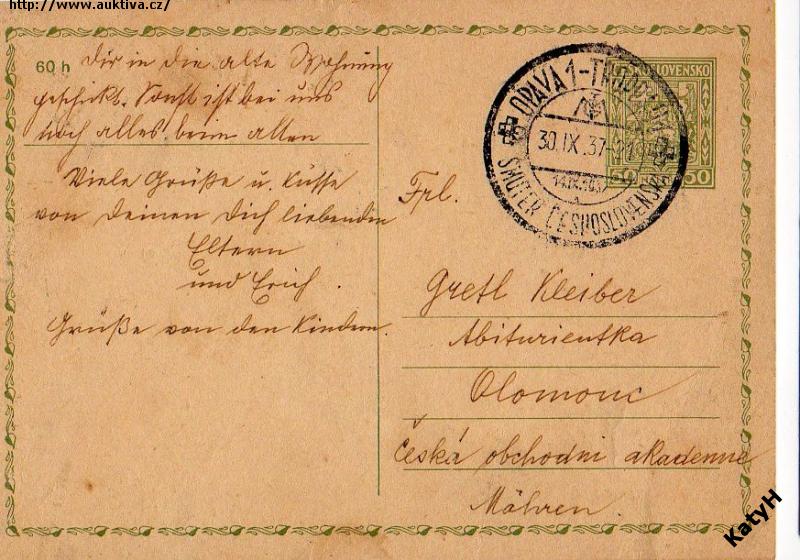 http://www.auktiva.cz/
60 h
Dir in die alte Wohnung
geschickt. Sonst ist bei uns
noch alles beim alten
Viele Grüße u. Küsse
von Deinen Dich liebenden
Eltern
und Erich.
Grüße von den Kindern.
OPAVA 1 -
30.IX.37
SMÚTEK ČESKOSLOVENSKA
14.IX.1937
ČESKOSLOVENSKO
60
Frl.
Gretl Kleiber
Abiturientka
Olomouc
Česká obchodni akademie
Mähren.
KatyH